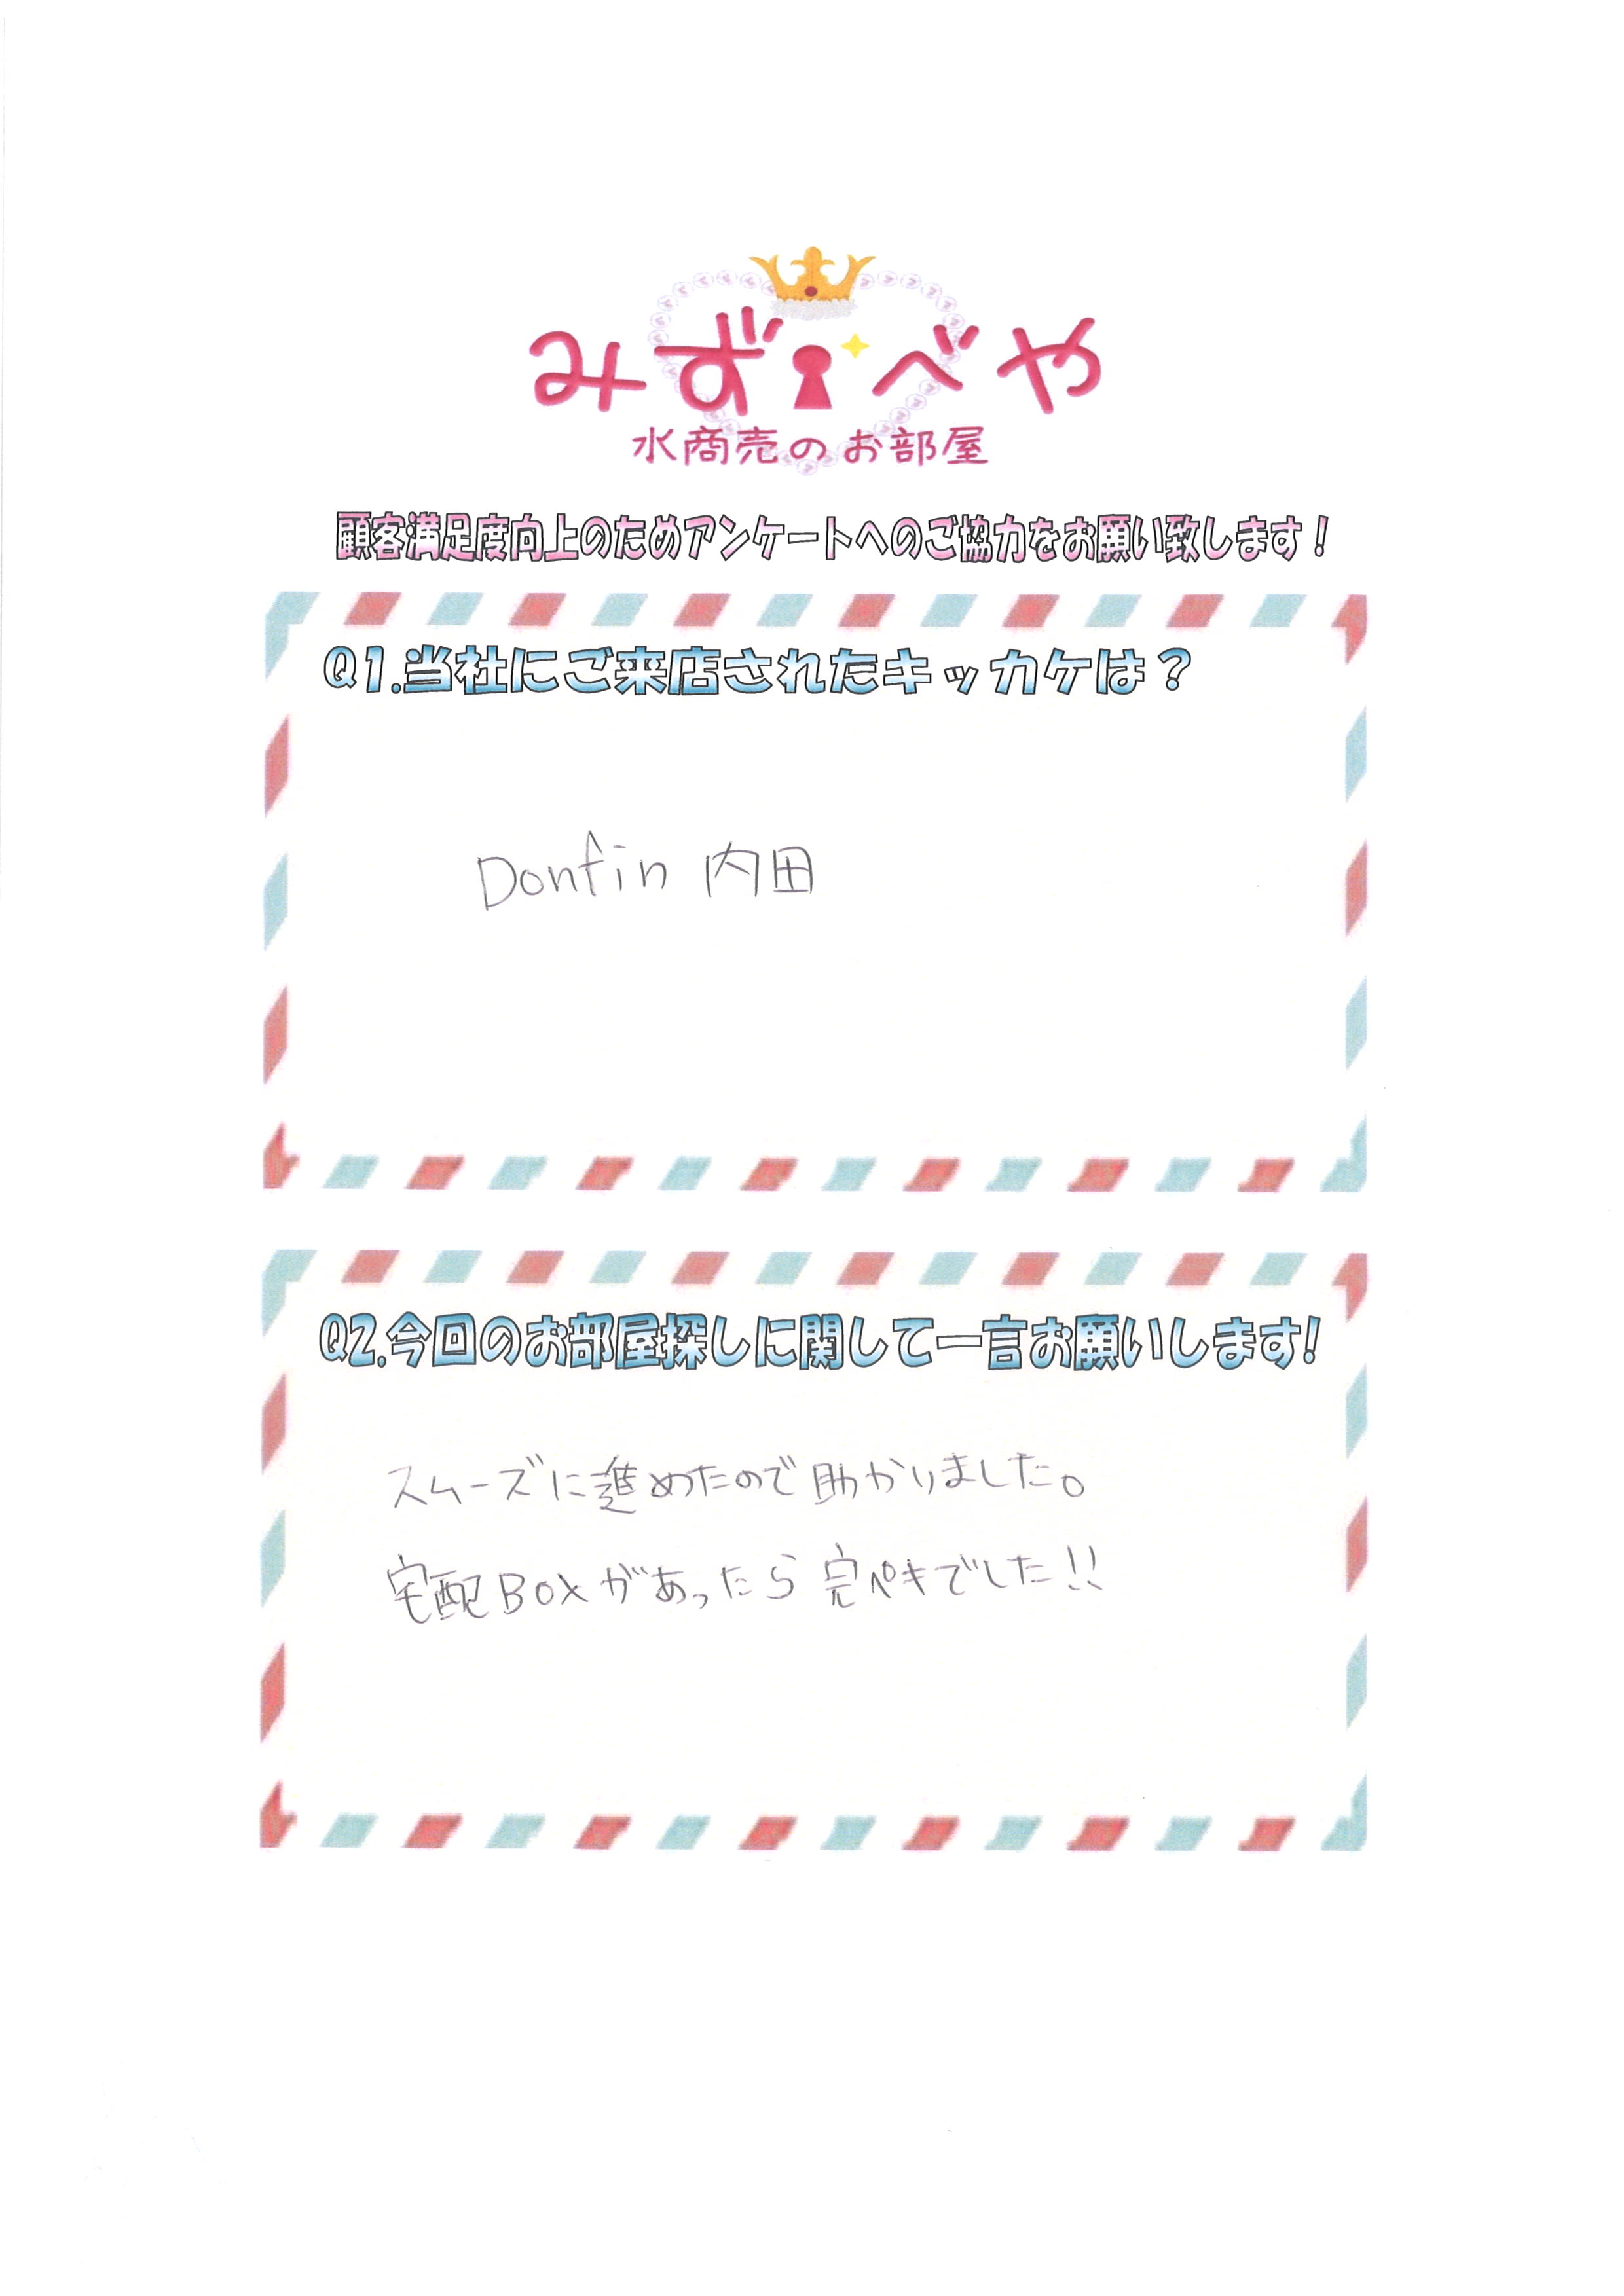 みずべや
水商売のお部屋
顧客満足度向上のためアンケートへのご協力をお願い致します！
Q1.当社にご来店されたキッカケは？
Donfin 内田
Q2.今回のお部屋探しに関して一言お願いします！
スムーズに進めたので助かりました。
宅配BOXがあったら完ペキでした!!